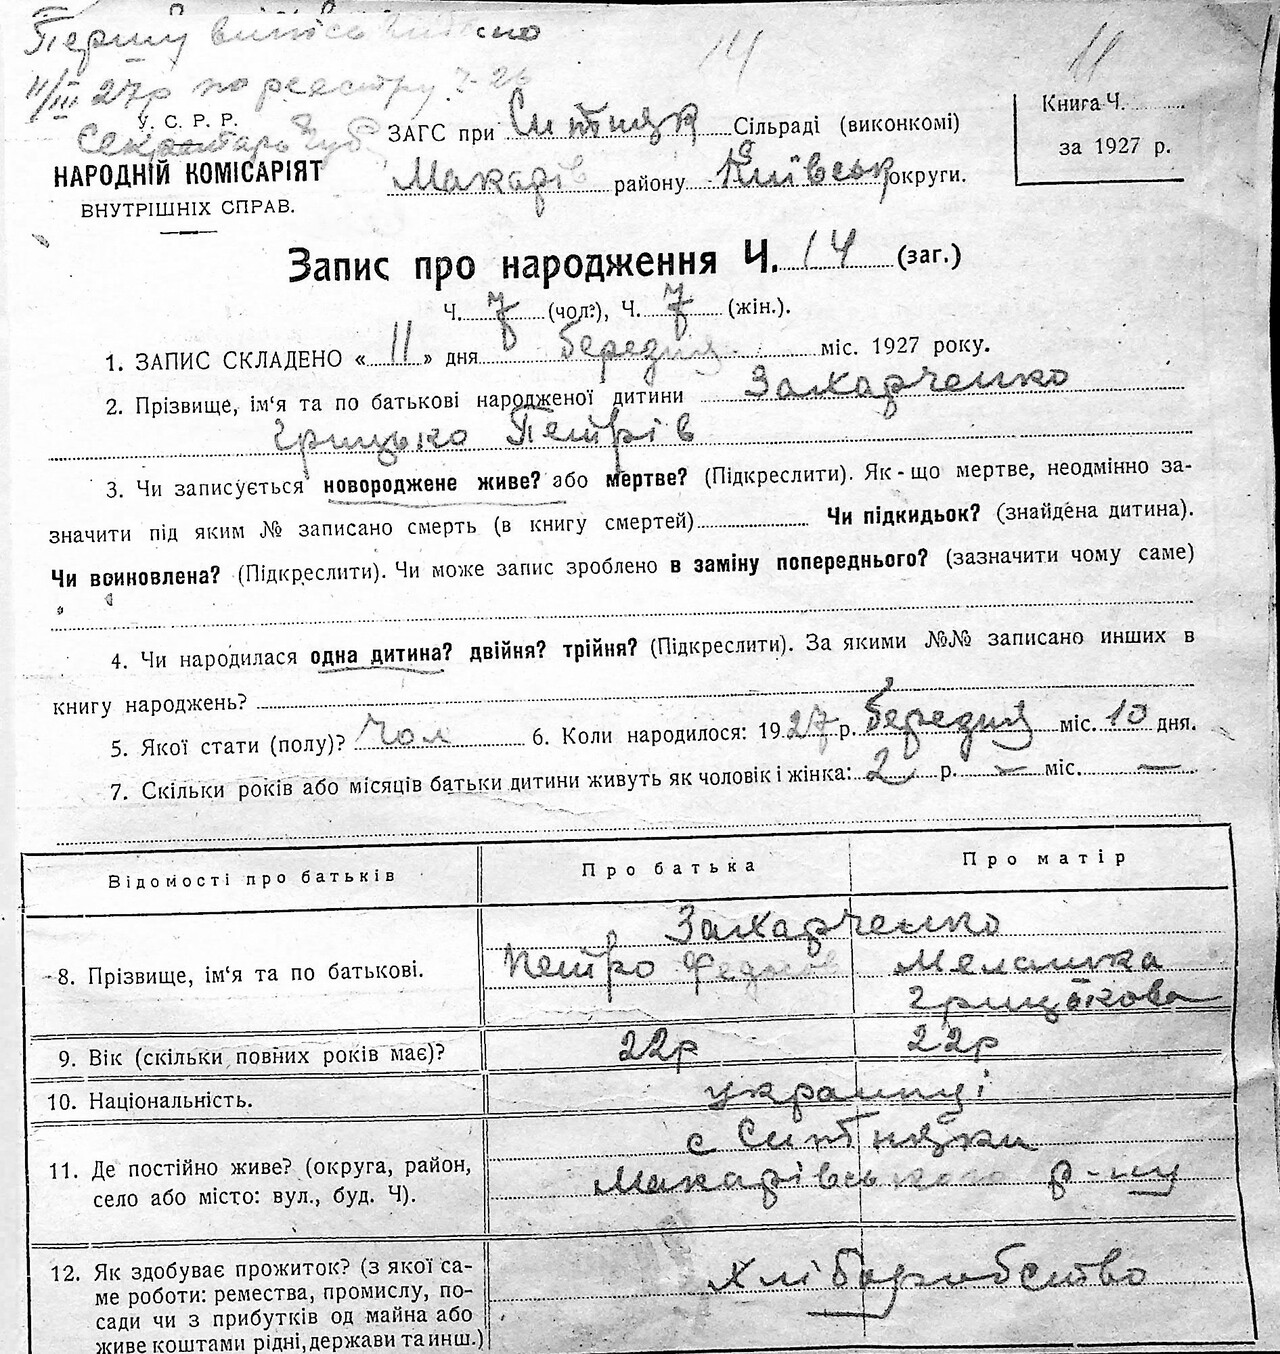 Першу виписъ видано
11/III 27р по реестру 7-26
Секретарь
14
11
У. С. Р. Р.
НАРОДНІЙ КОМІСАРІЯТ
ВНУТРІШНІХ СПРАВ.
ЗАГС при Ситняк Сільраді (виконкомі)
Макарів району Київськ округи.
Книга Ч. ........
за 1927 р.
Запис про народження Ч. 14 (заг.)
Ч. 7 (чол.), Ч. 7 (жін.).
1. ЗАПИС СКЛАДЕНО « 11 » дня березня міс. 1927 року.
2. Прізвище, ім‘я та по батькові народженої дитини Захарченко
Грицько Петрів
3. Чи записується новороджене живе? або мертве? (Підкреслити). Як-що мертве, неодмінно за-
значити під яким № записано смерть (в книгу смертей) ........ Чи підкидьок? (знайдена дитина).
Чи воиновлена? (Підкреслити). Чи може запис зроблено в заміну попереднього? (зазначити чому саме)
4. Чи народилася одна дитина? двійня? трійня? (Підкреслити). За якими №№ записано инших в
книгу народжень?
5. Якої стати (полу)? Чол 6. Коли народилося: 1927 р. березня міс. 10 дня.
7. Скільки років або місяців батьки дитини живуть як чоловік і жінка: 2 р. — міс. —
Відомості про батьків Про батька Про матір
Захарченко
8. Прізвище, ім‘я та по батькові. Петро Федков Мелашка
Грицькова
9. Вік (скільки повних років має)? 22р 22р
10. Національність. украинці
с Ситняки
11. Де постійно живе? (округа, район,
село або місто: вул., буд. Ч). Макарівського р-ну
12. Як здобуває прожиток? (з якої са- Хліборобство
ме роботи: ремества, промислу, по-
сади чи з прибутків од майна або
живе коштами рідні, держави та инш.)